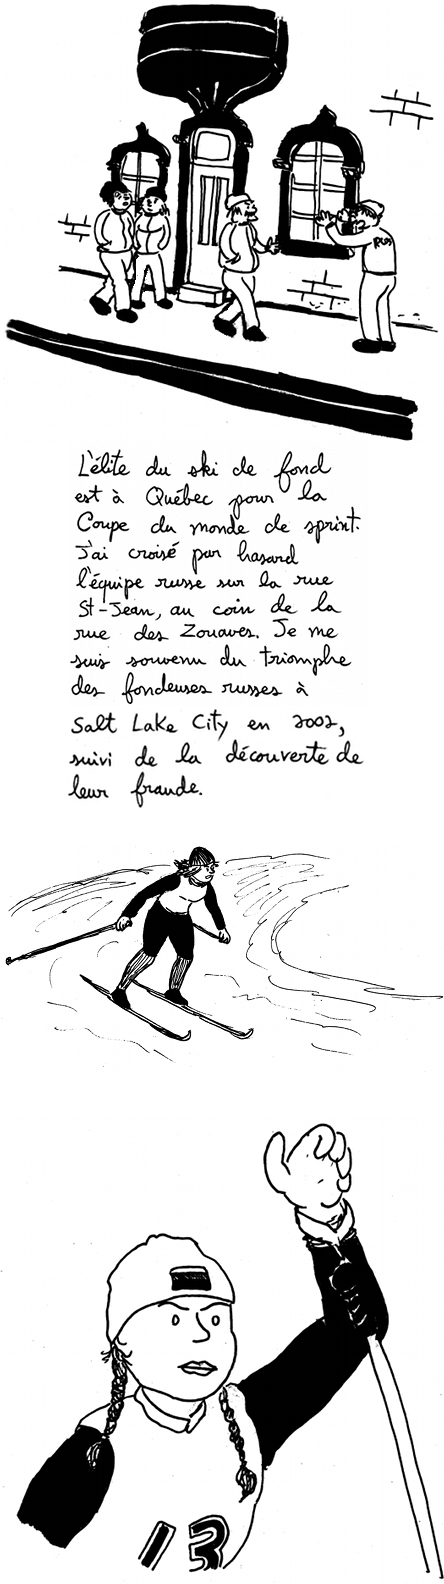 RUS
L'élite du ski de fond
est à Québec pour la
Coupe du monde de sprint.
J'ai croisé par hasard
l'équipe russe sur la rue
St-Jean, au coin de la
rue des Zouaves. Je me
suis souvenu du triomphe
des fondeuses russes à
Salt Lake City en 2002,
suivi de la découverte de
leur fraude.
13